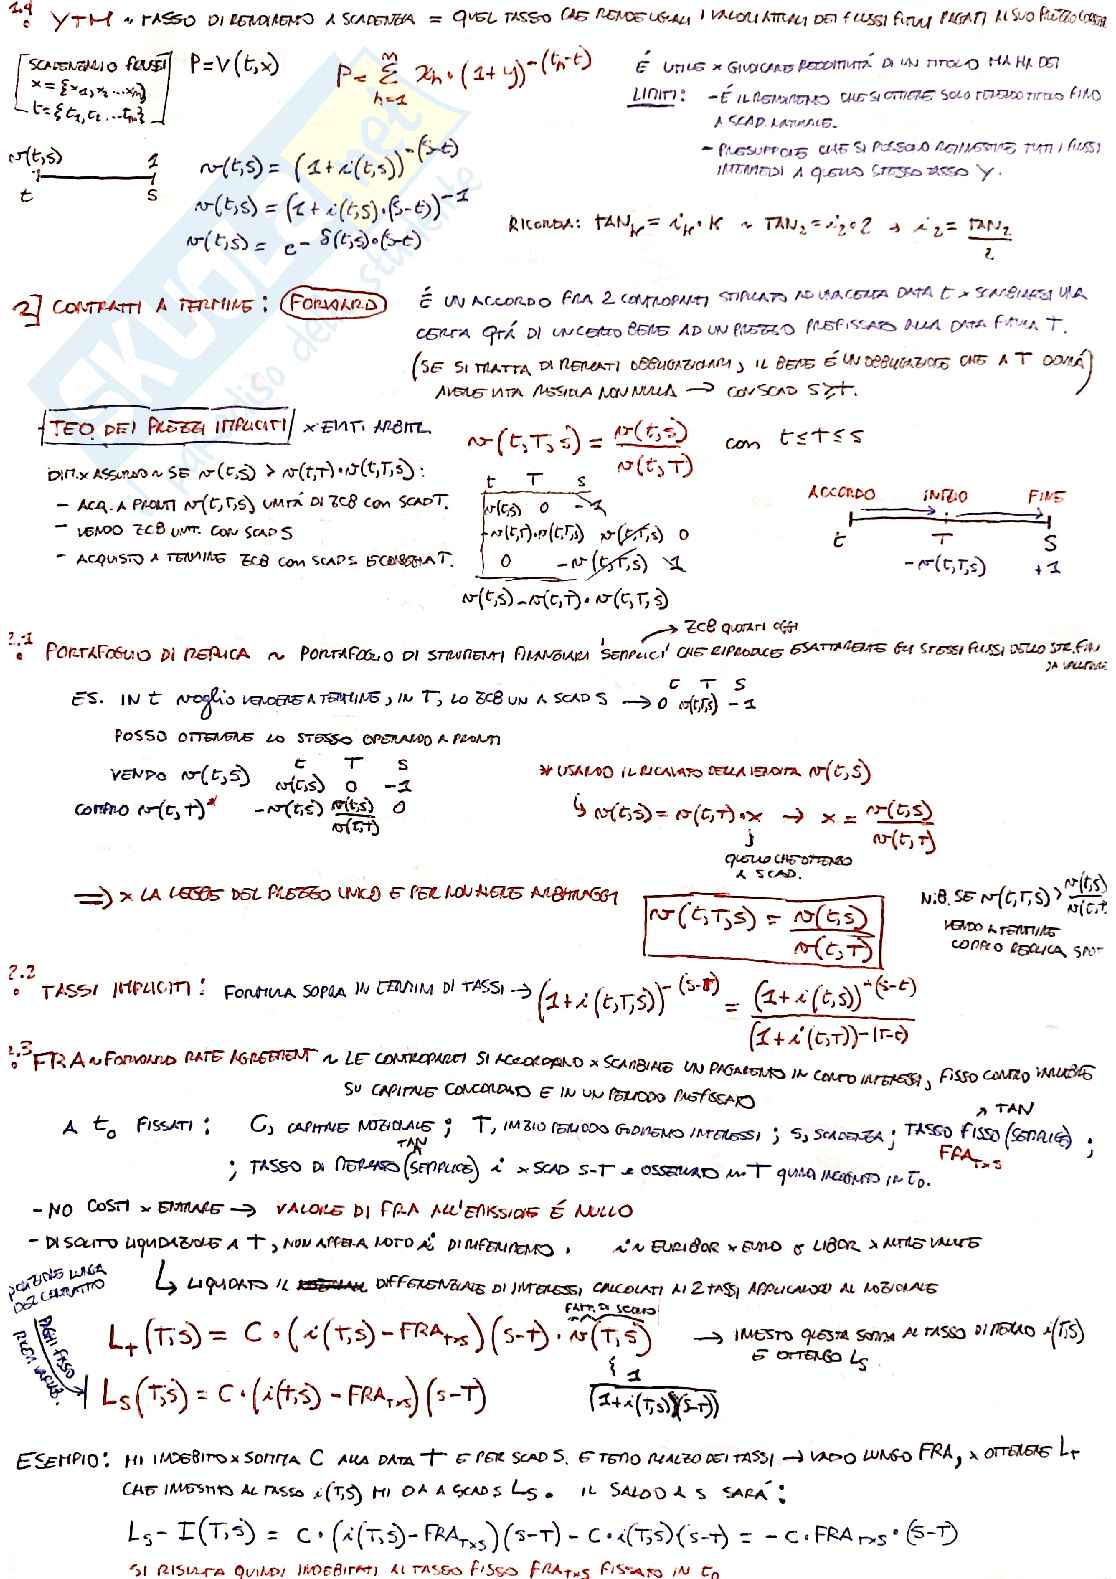 1.4 YTM ~ TASSO DI RENDIMENTO A SCADENZA = QUEL TASSO CHE RENDE UGUALI I VALORI ATTUALI DEI FLUSSI FUTURI PAGATI AL SUO PREZZO
SCADENZARIO FLUSSI
x = {x1, x2 ... xm}
t = {t1, t2 ... tm}
P = V(t,x)
P = Σ(n=1, m) xn · (1+y)^-(tn-t)
É UTILE x GIUDICARE REDDITIVITÁ DI UN TITOLO MA HA DEI
LIMITI: - É IL RENDIMENTO CHE SI OTTIENE SOLO TENENDO TITOLO FINO
A SCAD. NATURALE.
- PRESUPPONE CHE SI POSSANO REINVESTIRE TUTTI I FLUSSI
INTERMEDI A QUELLO STESSO TASSO Y.
v(t,s) 1
t s
v(t,s) = (1+i(t,s))^-(s-t)
v(t,s) = (1+i(t,s)·(s-t))^-1
v(t,s) = e^-δ(t,s)·(s-t)
RICORDA: TAN_K = i_K · K ~ TAN_2 = i_2 · 2 → i_2 = TAN_2 / 2
2] CONTRATTI A TERMINE: FORWARD
É UN ACCORDO FRA 2 CONTROPARTI STIPULATO AD UNA CERTA DATA t x SCAMBIARSI UNA
CERTA QTÁ DI UN CERTO BENE AD UN PREZZO PREFISSATO ALLA DATA FUTURA T.
(SE SI TRATTA DI MERCATI OBBLIGAZIONARI, IL BENE É UN'OBBLIGAZIONE CHE A T DOVRÁ
AVERE VITA RESIDUA NON NULLA → CON SCAD S ≥ T.
TEO. DEI PREZZI IMPLICITI x EVIT. ARBITR.
v(t,T,s) = v(t,s) / v(t,T) con t ≤ T ≤ s
DIM. x ASSURDO ~ SE v(t,s) > v(t,T)·v(t,T,s):
- ACQ. A PRONTI v(t,T,s) UNITÁ DI ZCB CON SCAD T.
- VENDO ZCB UNIT. CON SCAD S
- ACQUISTO A TERMINE ZCB CON SCAD S E CONSEGNA T.
t T s
v(t,s) 0 -1
-v(t,T)·v(t,T,s) v(t,T,s) 0
0 -v(t,T,s) 1
v(t,s) - v(t,T)·v(t,T,s)
ACCORDO INIZIO FINE
t T S
-v(t,T,s) +1
→ ZCB QUOTATI OGGI
2.1 PORTAFOGLIO DI REPLICA ~ PORTAFOGLIO DI STRUMENTI FINANZIARI 'SEMPLICI' CHE RIPRODUCE ESATTAMENTE GLI STESSI FLUSSI DELLO STR. FIN
DA VALUTARE
ES. IN t voglio VENDERE A TERMINE, IN T, LO ZCB UN. A SCAD S → 0 v(t,T,s) -1
t T S
POSSO OTTENERE LO STESSO OPERANDO A PRONTI
t T S
VENDO v(t,s) v(t,s) 0 -1
COMPRO v(t,T)* -v(t,s) v(t,s)/v(t,T) 0
* USANDO IL RICAVATO DELLA VENDITA v(t,s)
↳ v(t,s) = v(t,T)·x → x = v(t,s) / v(t,T)
QUELLO CHE OTTENGO
A SCAD.
⇒ x LA LEGGE DEL PREZZO UNICO E PER NON AVERE ARBITRAGGI
v(t,T,s) = v(t,s) / v(t,T)
N.B. SE v(t,T,s) > v(t,s) / v(t,T
VENDO A TERMINE
COMPRO REPLICA SPOT
2.2 TASSI IMPLICITI: FORMULA SOPRA IN TERMINI DI TASSI → (1+i(t,T,s))^-(s-T) = (1+i(t,s))^-(s-t) / (1+i(t,T))^-(T-t)
2.3 FRA ~ FORWARD RATE AGREEMENT ~ LE CONTROPARTI SI ACCORDANO x SCAMBIARE UN PAGAMENTO IN CONTO INTERESSI, FISSO CONTRO VARIABILE
SU CAPITALE CONCORDATO E IN UN PERIODO PREFISSATO
A t0 FISSATI: C, CAPITALE NOZIONALE; T, INIZIO PERIODO GODIMENTO INTERESSI; S, SCADENZA; TASSO FISSO (SEMPLICE);
↗ TAN
FRA_TxS
TAN
; TASSO DI MERCATO (SEMPLICE) i x SCAD S-T e OSSERVATO IN T QUINDI INCOGNITO IN t0.
- NO COSTI x ENTRARE → VALORE DI FRA ALL'EMISSIONE É NULLO
- DI SOLITO LIQUIDAZIONE A T, NON APPENA NOTO i DI RIFERIMENTO. i ~ EURIBOR x EURO o LIBOR x ALTRE VALUTE
↳ LIQUIDATO IL DIFFERENZIALE DI INTERESSI, CALCOLATI AI 2 TASSI APPLICANDOLI AL NOZIONALE
POSIZIONE LUNGA
DEL CONTRATTO
PAGHI FISSO
RICEVI VARIAB.
FATT. DI SCONTO
L_T(T,S) = C·(i(T,S) - FRA_TxS)(S-T)·v(T,S)
1 / (1+i(T,S)(S-T))
→ INVESTO QUESTA SOMMA AL TASSO DI MERCATO i(T,S)
E OTTENGO L_S.
L_S(T,S) = C·(i(T,S) - FRA_TxS)(S-T)
ESEMPIO: MI INDEBITO x SOMMA C ALLA DATA T E PER SCAD S. E TEMO RIALZO DEI TASSI → VADO LUNGO FRA, x OTTENERE L_T
CHE INVESTITO AL TASSO i(T,S) MI DA A SCAD S L_S. IL SALDO A S SARÁ:
L_S - I(T,S) = C·(i(T,S) - FRA_TxS)(S-T) - C·i(T,S)(S-T) = -C·FRA_TxS·(S-T)
SI RISULTA QUINDI INDEBITATI AL TASSO FISSO FRA_TxS FISSATO IN t0
SKUOLA.net
paradiso dello studente